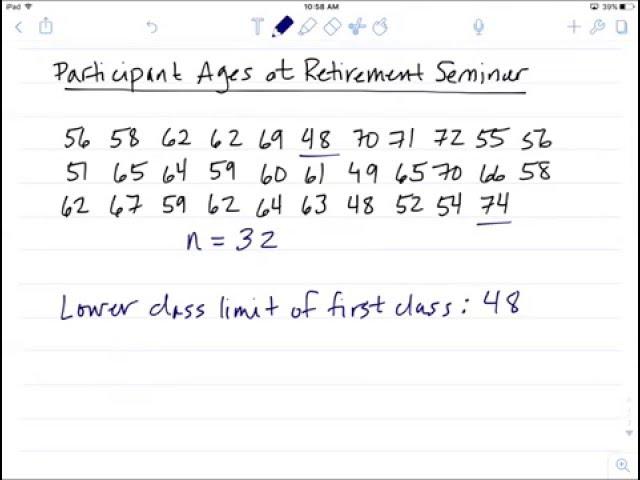 iPad
10:58 AM
39%
Participant Ages at Retirement Seminar
56 58 62 62 69 48 70 71 72 55 56
51 65 64 59 60 61 49 65 70 66 58
62 67 59 62 64 63 48 52 54 74
n = 32
Lower class limit of first class: 48